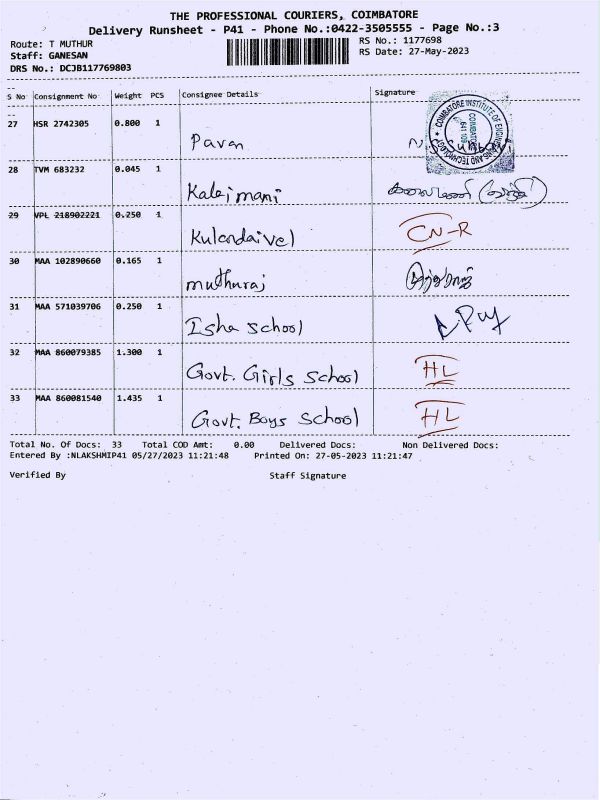 THE PROFESSIONAL COURIERS, COIMBATORE
Delivery Runsheet - P41 - Phone No.:0422-3505555 - Page No.:3
Route: T MUTHUR RS No.: 1177698
Staff: GANESAN RS Date: 27-May-2023
DRS No.: DCJB117769803
S No Consignment No Weight PCS Consignee Details Signature
27 HSR 2742305 0.800 1
Pavan
COIMBATORE INSTITUTE OF ENGINEERING AND TECHNOLOGY
28 TVM 683232 0.045 1
Kalaimani
29 VPL 218902221 0.250 1
Kulandaivel CN-R
30 MAA 102890660 0.165 1
muthuraj
31 MAA 571039706 0.250 1
Isha school
32 MAA 860079385 1.300 1
Govt. Girls School HL
33 MAA 860081540 1.435 1
Govt. Boys School HL
Total No. Of Docs: 33 Total COD Amt: 0.00 Delivered Docs: Non Delivered Docs:
Entered By :NLAKSHMIP41 05/27/2023 11:21:48 Printed On: 27-05-2023 11:21:47
Verified By Staff Signature